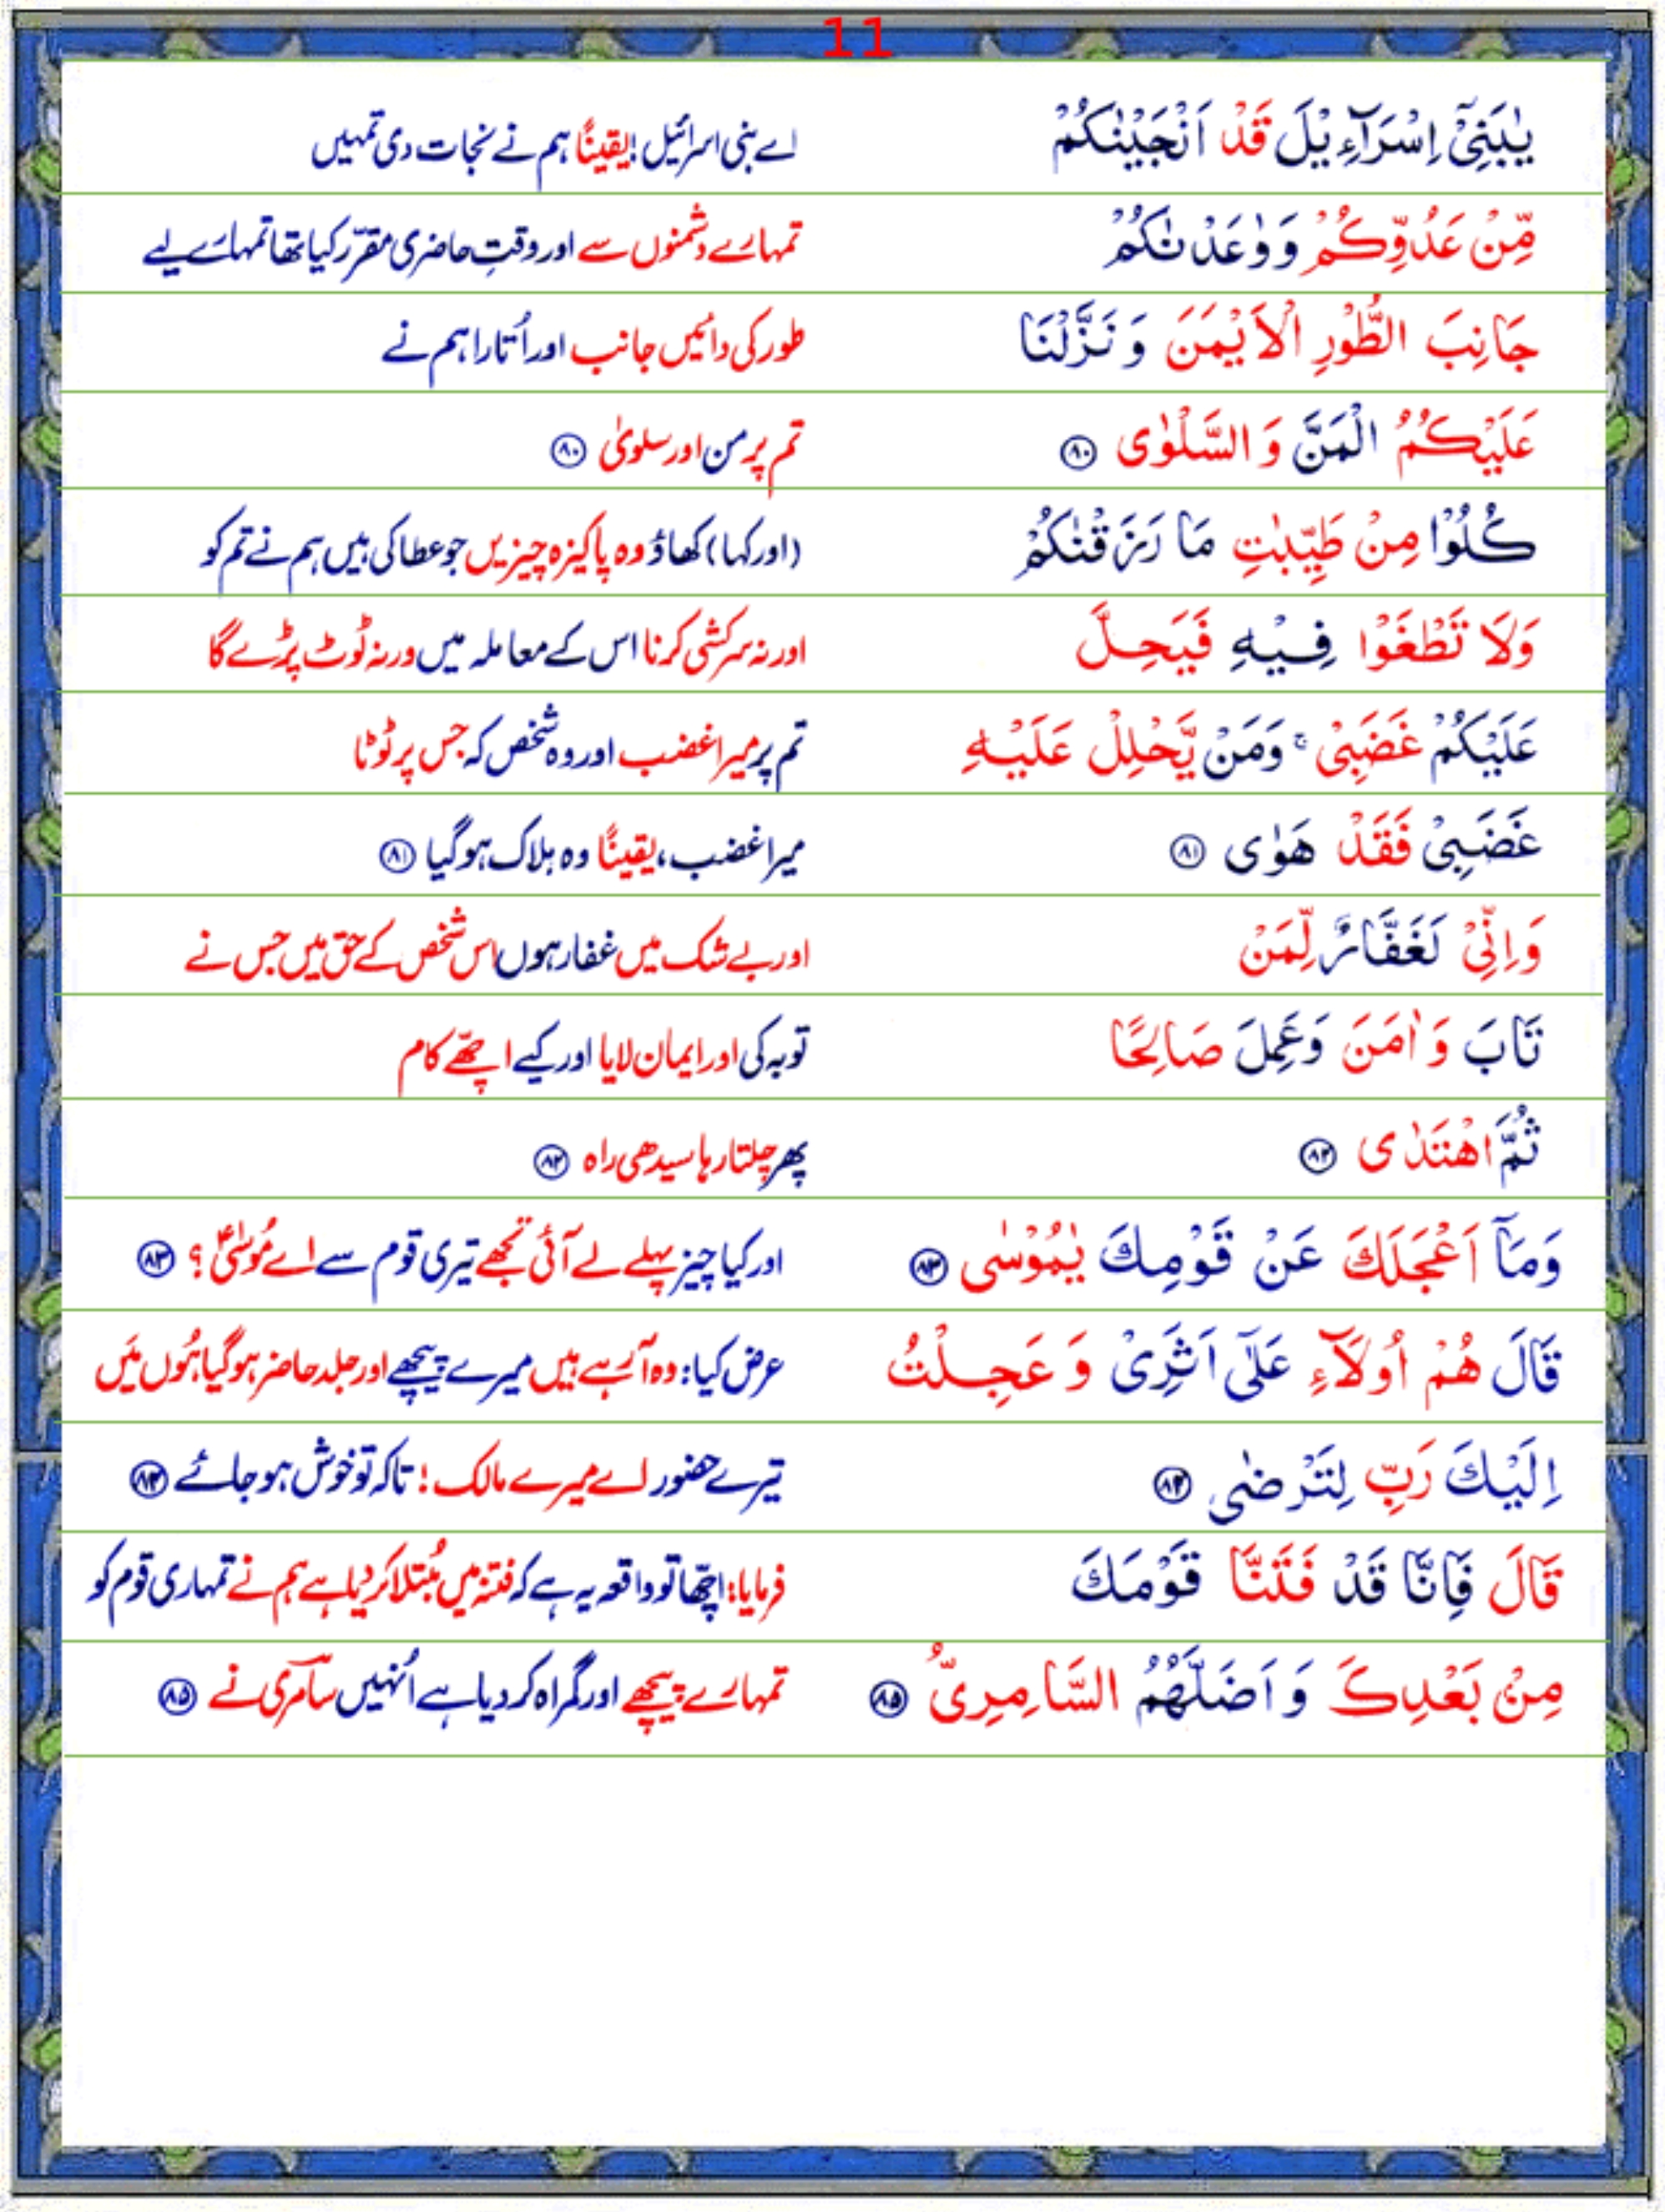 11
يٰبَنِيْٓ اِسْرَآءِيْلَ قَدْ اَنْجَيْنٰكُمْ
اے بنی اسرائیل! یقیناً ہم نے نجات دی تمہیں
مِّنْ عَدُوِّكُمْ وَوٰعَدْنٰكُمْ
تمہارے دشمنوں سے اور وقتِ حاضری مقرّر کیا تھا تمہارے لیے
جَانِبَ الطُّوْرِ الْاَيْمَنَ وَنَزَّلْنَا
طور کی دائیں جانب اور اُتارا ہم نے
عَلَيْكُمُ الْمَنَّ وَ السَّلْوٰى ۸۰
تم پر من اور سلویٰ ۸۰
كُلُوْا مِنْ طَيِّبٰتِ مَا رَزَقْنٰكُمْ
(اور کہا) کھاؤ وہ پاکیزہ چیزیں جو عطا کی ہیں ہم نے تم کو
وَلَا تَطْغَوْا فِيْهِ فَيَحِلَّ
اور نہ سرکشی کرنا اس کے معاملہ میں ورنہ ٹوٹ پڑے گا
عَلَيْكُمْ غَضَبِيْ ۚ وَمَنْ يَّحْلِلْ عَلَيْهِ
تم پر میرا غضب اور وہ شخص کہ جس پر ٹوٹا
غَضَبِيْ فَقَدْ هَوٰى ۸۱
میرا غضب، یقیناً وہ ہلاک ہوگیا ۸۱
وَاِنِّيْ لَغَفَّارٌ لِّمَنْ
اور بے شک میں غفار ہوں اس شخص کے حق میں جس نے
تَابَ وَاٰمَنَ وَعَمِلَ صَالِحًا
توبہ کی اور ایمان لایا اور کیے اچھّے کام
ثُمَّ اهْتَدٰى ۸۲
پھر چلتا رہا سیدھی راہ ۸۲
وَمَآ اَعْجَلَكَ عَنْ قَوْمِكَ يٰمُوْسٰى ۸۳
اور کیا چیز پہلے لے آئی تجھے تیری قوم سے اے مُوسٰیؑ؟ ۸۳
قَالَ هُمْ اُولَآءِ عَلٰٓى اَثَرِيْ وَ عَجِلْتُ
عرض کیا: وہ آرہے ہیں میرے پیچھے اور جلد حاضر ہوگیا ہُوں مَیں
اِلَيْكَ رَبِّ لِتَرْضٰى ۸۴
تیرے حضور اے میرے مالک! تاکہ تو خوش ہوجائے ۸۴
قَالَ فَاِنَّا قَدْ فَتَنَّا قَوْمَكَ
فرمایا: اچھّا تو واقعہ یہ ہے کہ فتنہ میں مُبتلا کردیا ہے ہم نے تمہاری قوم کو
مِنْ بَعْدِكَ وَ اَضَلَّهُمُ السَّامِرِيُّ ۸۵
تمہارے پیچھے اور گمراہ کردیا ہے اُنہیں سامری نے ۸۵